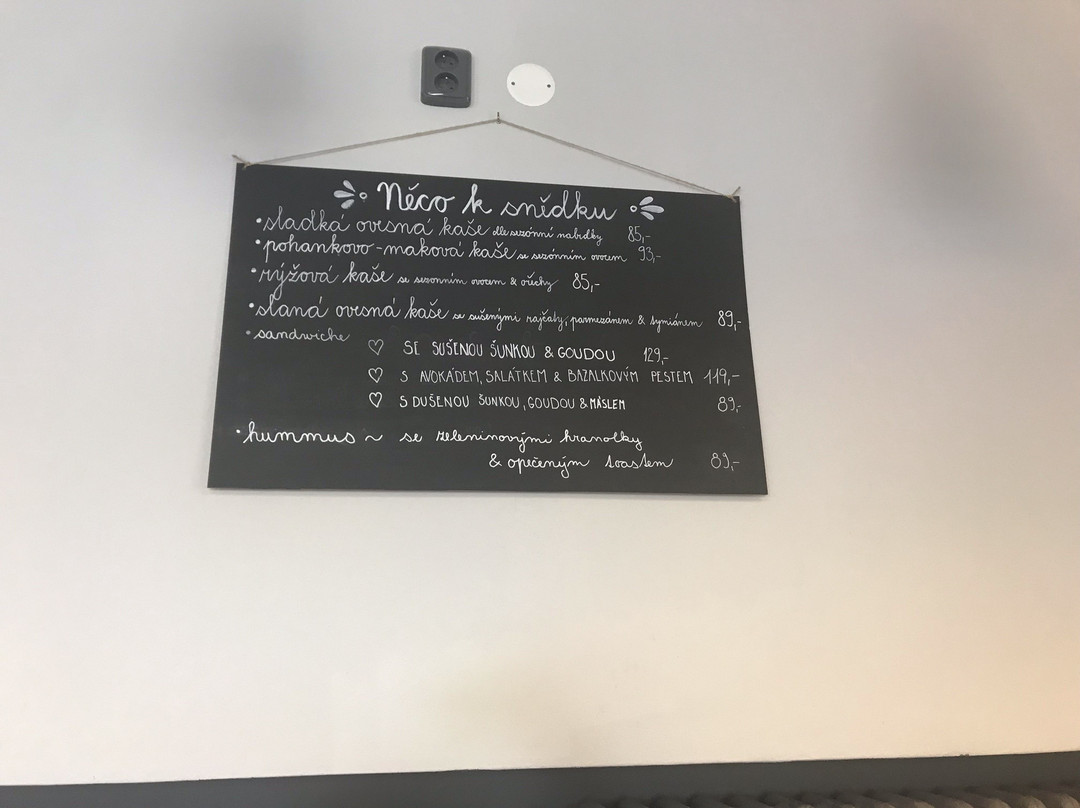 Něco k snídku
• sladká ovesná kaše dle sezónní nabídky 85,-
• pohankovo-maková kaše se sezónním ovocem 93,-
• rýžová kaše se sezonním ovocem & ořechy 85,-
• slaná ovesná kaše se sušenými rajčaty, parmezánem & tymiánem 89,-
• sandwiche
♡ SE SUŠENOU ŠUNKOU & GOUDOU 129,-
♡ S AVOKÁDEM, SALÁTKEM & BAZALKOVÝM PESTEM 119,-
♡ S DUŠENOU ŠUNKOU, GOUDOU & MÁSLEM 89,-
• hummus ~ se zeleninovými hranolky
& opečeným toastem 89,-